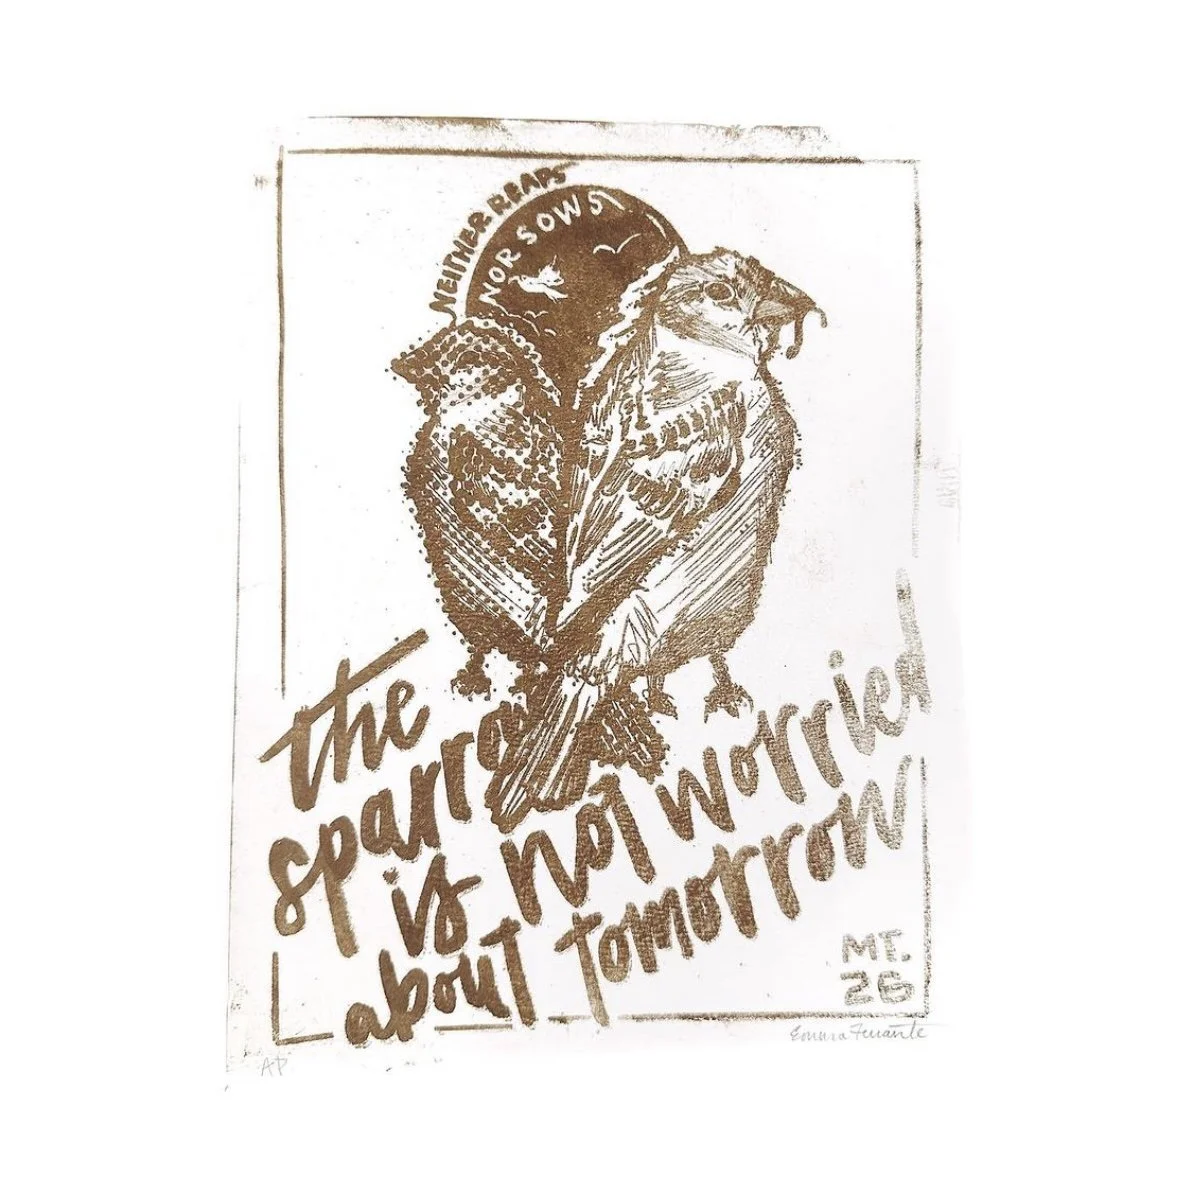 NEITHER REAPS
NOR SOWS
the
sparrow
is not worried
about tomorrow
MT.
26
AP
Emma Ferrante